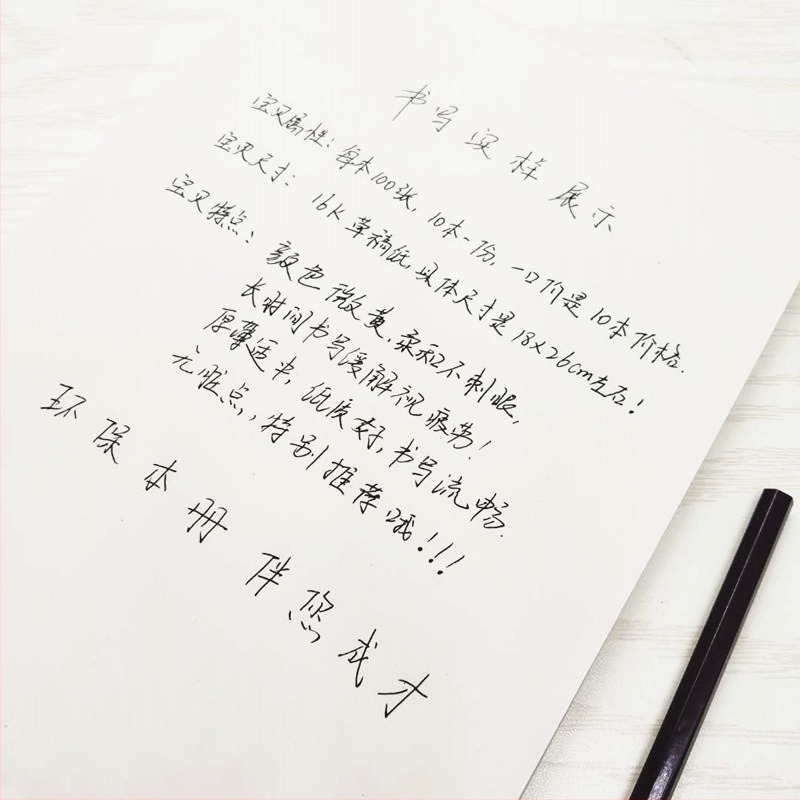 书写实样展示
宝贝属性：每本100张，10本一份，一口价是10本价格.
宝贝尺寸：16K草稿纸，具体尺寸是18×26cm左右！
宝贝特点：颜色微黄，柔和不刺眼，
长时间书写缓解视疲劳！
厚薄适中，纸质好，书写流畅.
无脏点，特别推荐哦！！！
环保本册伴您成才